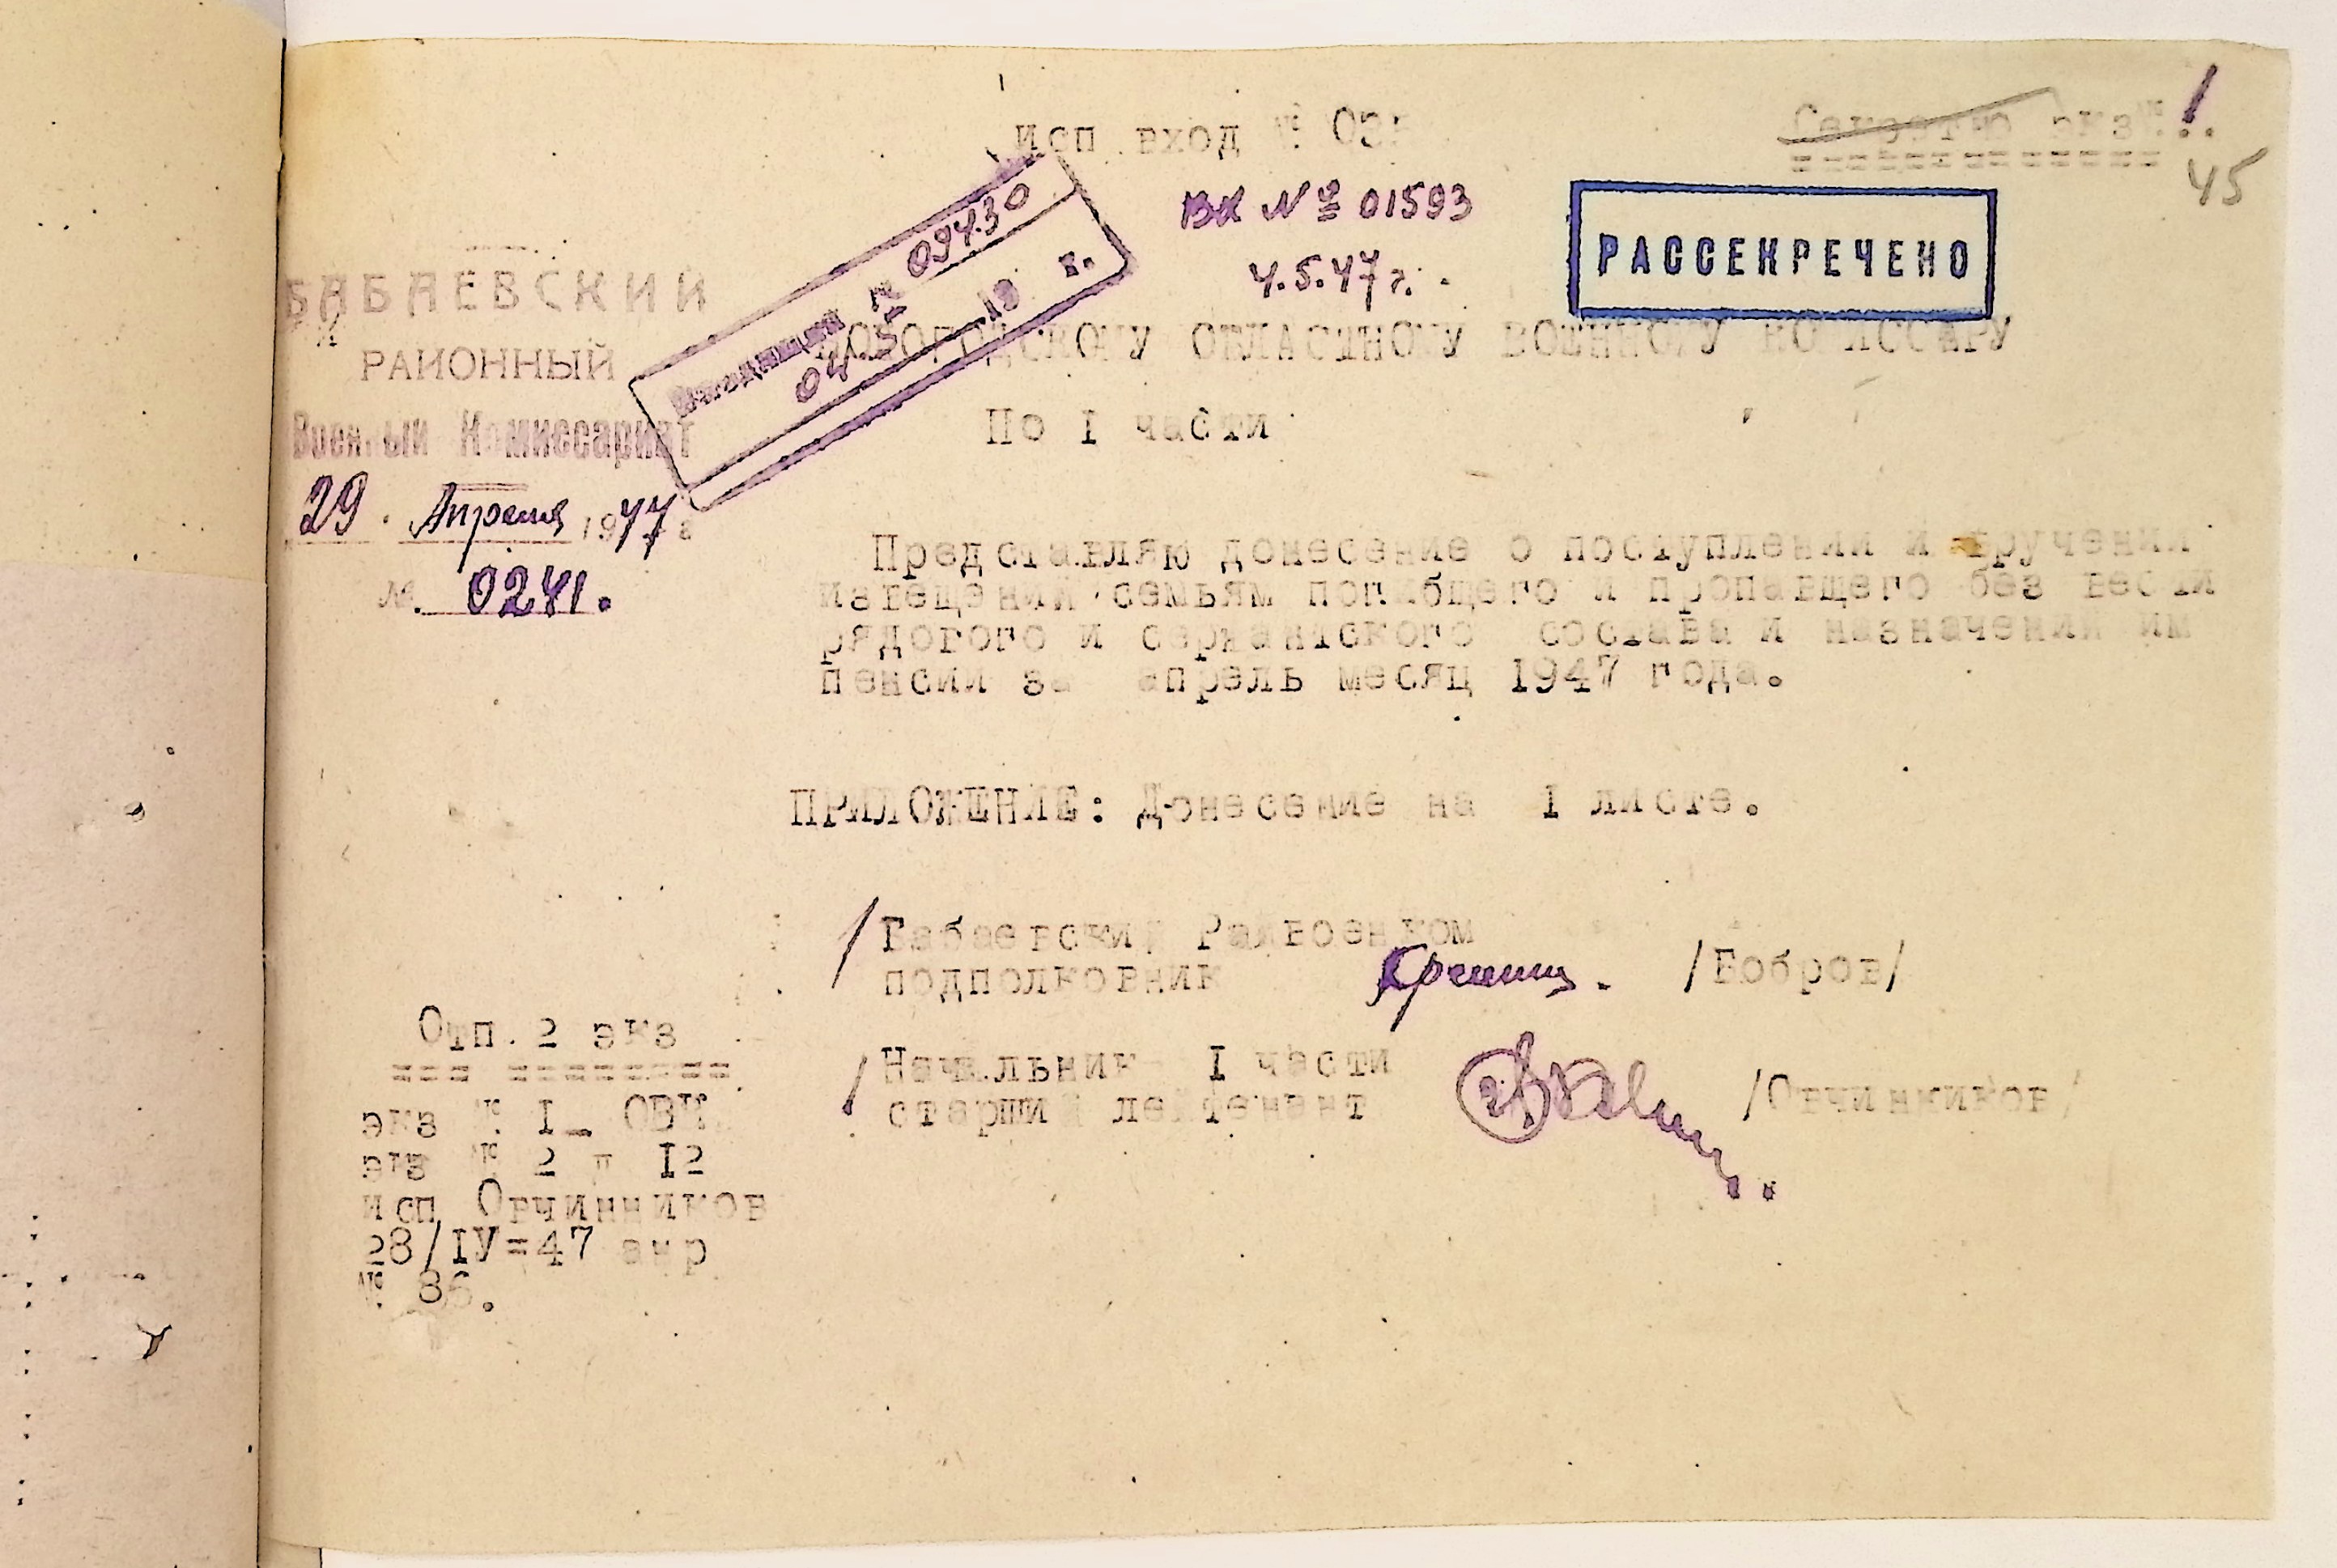 исп вход № 03
Секретно экз № 1
45
Вх № 01593
4.5.47 г.
РАССЕКРЕЧЕНО
Входящий № 09430
04 19 г.
БАБАЕВСКИЙ
РАЙОННЫЙ
Военный Комиссариат
29 . Апреля 1947 г
№ 0241.
ВОЛОГОДСКОМУ ОБЛАСТНОМУ ВОЕННОМУ КОМИССАРУ
По I части
Представляю донесение о поступлении и вручении
извещений семьям погибщего и пропавщего без вести
рядового и сержантского состава и назначении им
пенсии за апрель месяц 1947 года.
ПРИЛОЖЕНИЕ: Донесение на I листе.
/ Бабаевский Райвоенком
подполковник /Бобров/
/ Начальник I части
старший лейтенант /Овчинников/
Отп. 2 экз
=== ========
экз № I_ ОВК
экз № 2 " I2
исп Овчинников
28/IУ=47
№ 86.